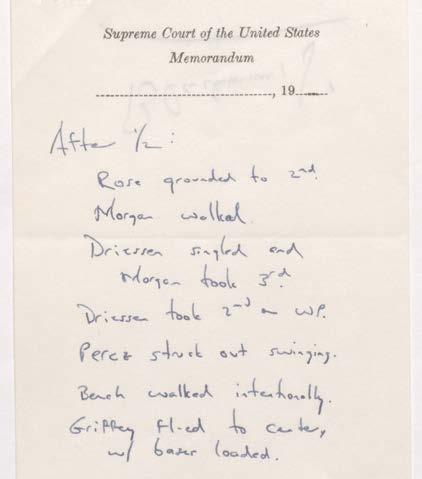 Supreme Court of the United States
Memorandum
, 19
After 1/2 :
Rose grounded to 2nd.
Morgan walked.
Driessen singled and
Morgan took 3rd.
Driessen took 2nd on WP.
Perez struck out swinging.
Bench walked intentionally.
Griffey flied to center,
w/ bases loaded.